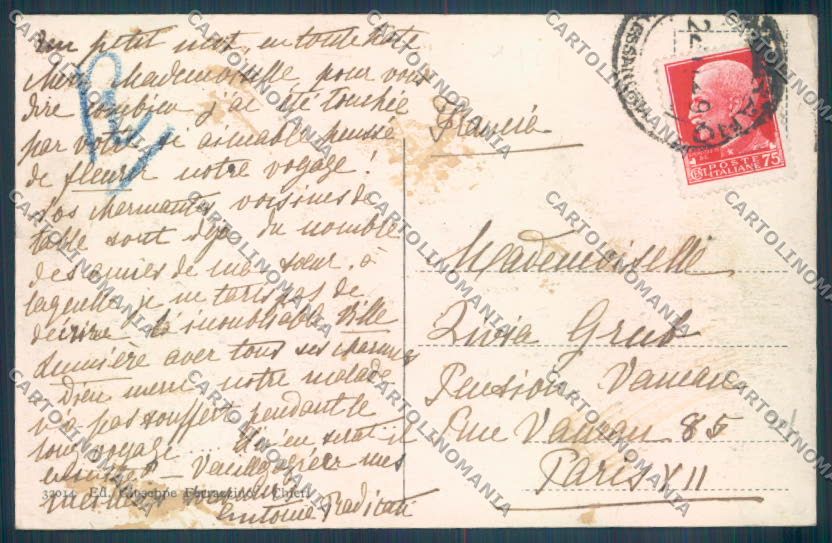 Un petit mot, en toute hâte
Mademoiselle pour vous
dire combien j'ai été touchée
par votre si aimable pensée
de fleurir notre voyage!
Vos charmantes voisines de
table sont déjà du nombre
des amies de ma sœur, à
laquelle je ne taris pas de
décrire la inoubliable Ville
lumière avec tous ses charmes
Dieu merci notre malade
n'a pas souffert pendant le
long voyage... Qu'en serait-il
Veuillez agréer mes
32014 Ed. Giuseppe Chieri
Antonia Pradicati
Francia
Mademoiselle
Livia Grub
Pension Vaneau
Rue Vaneau 85
Paris VII
POSTE
ITALIANE
75
CARTOLINOMANIA